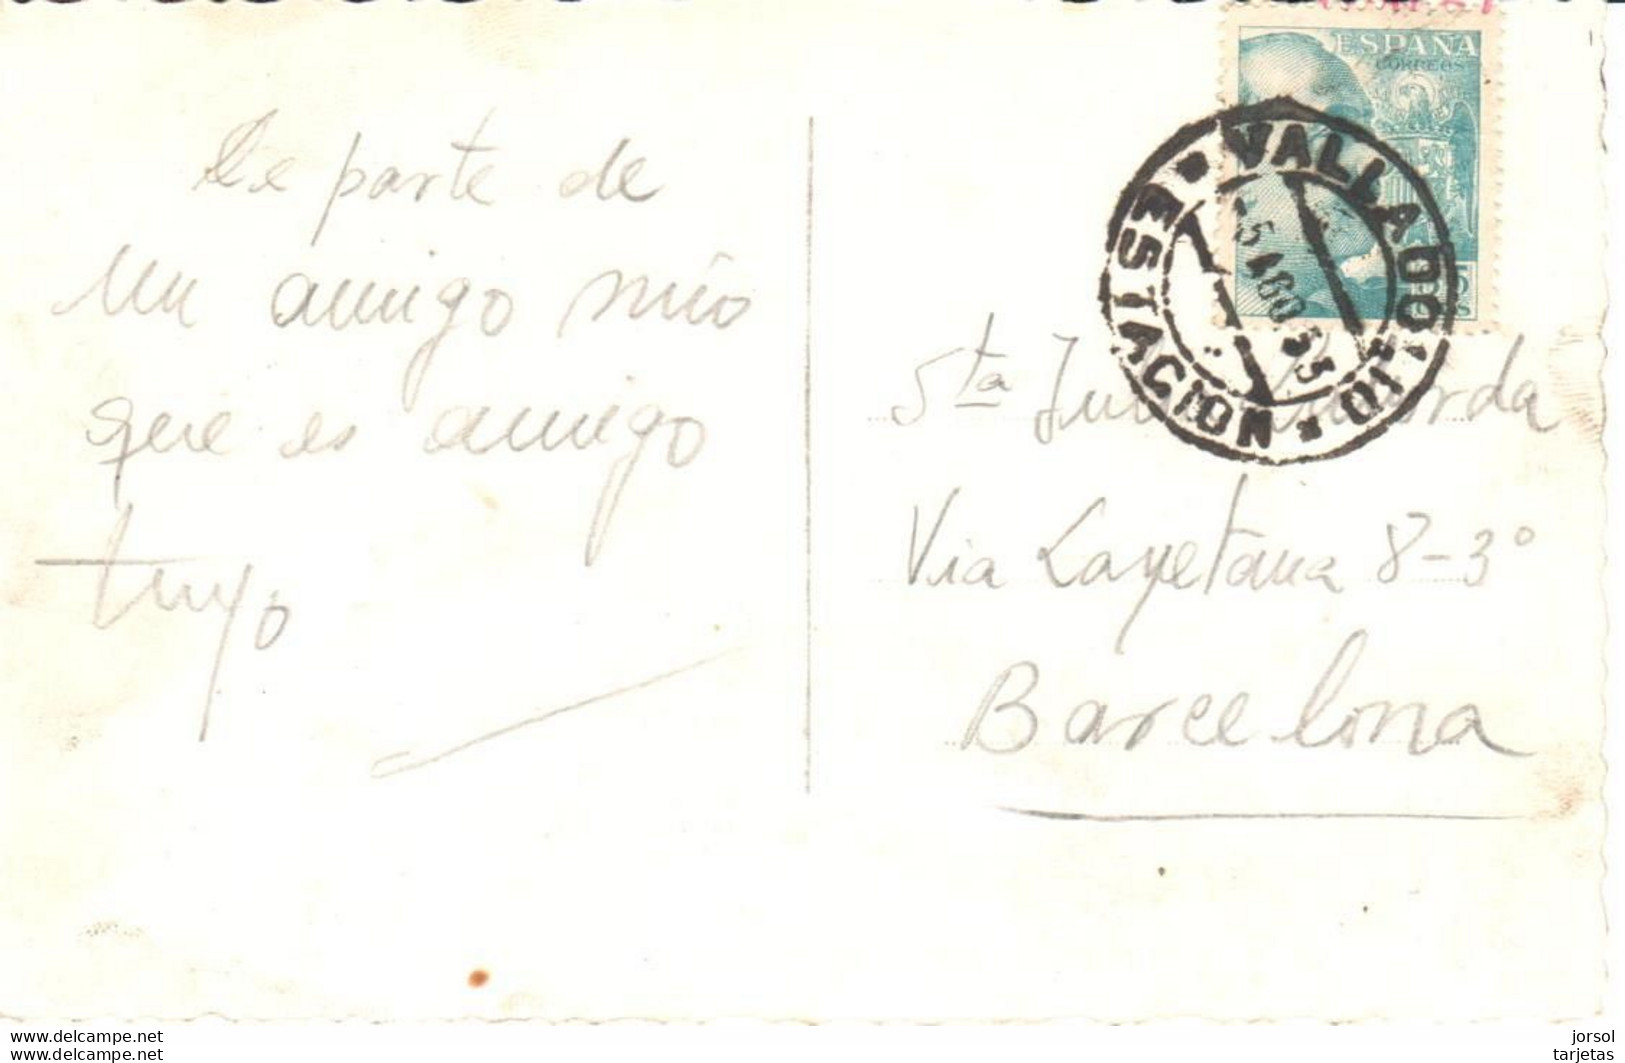 De parte de
un amigo mío
que es amigo
tuyo
ESPAÑA
CORREOS
VALLADOLID
5 AGO 53
ESTACION
Sta
Via Layetana 8-3º
Barcelona
www.delcampe.net
www.delcampe.net
jorsol
tarjetas